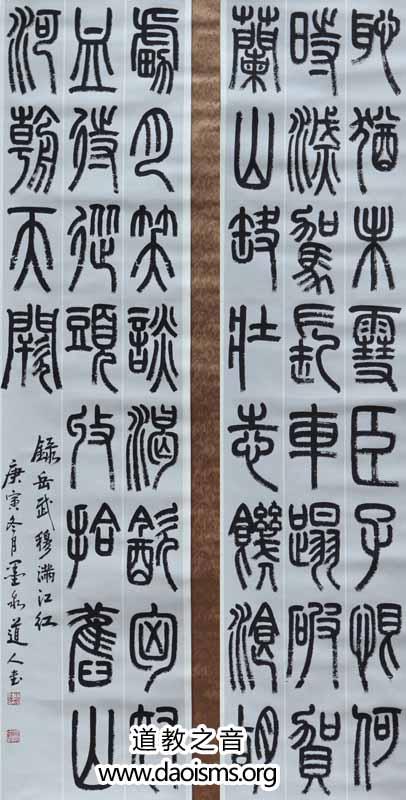 恥猶未雪臣子恨何
時滅駕長車蹋破賀
蘭山缺壯志饑湌胡
虜肉笑談渴飲匈奴
血待從頭收拾舊山
河朝天闕
錄岳武穆滿江紅
庚寅冬月墨泉道人書
道教之音
www.daoisms.org